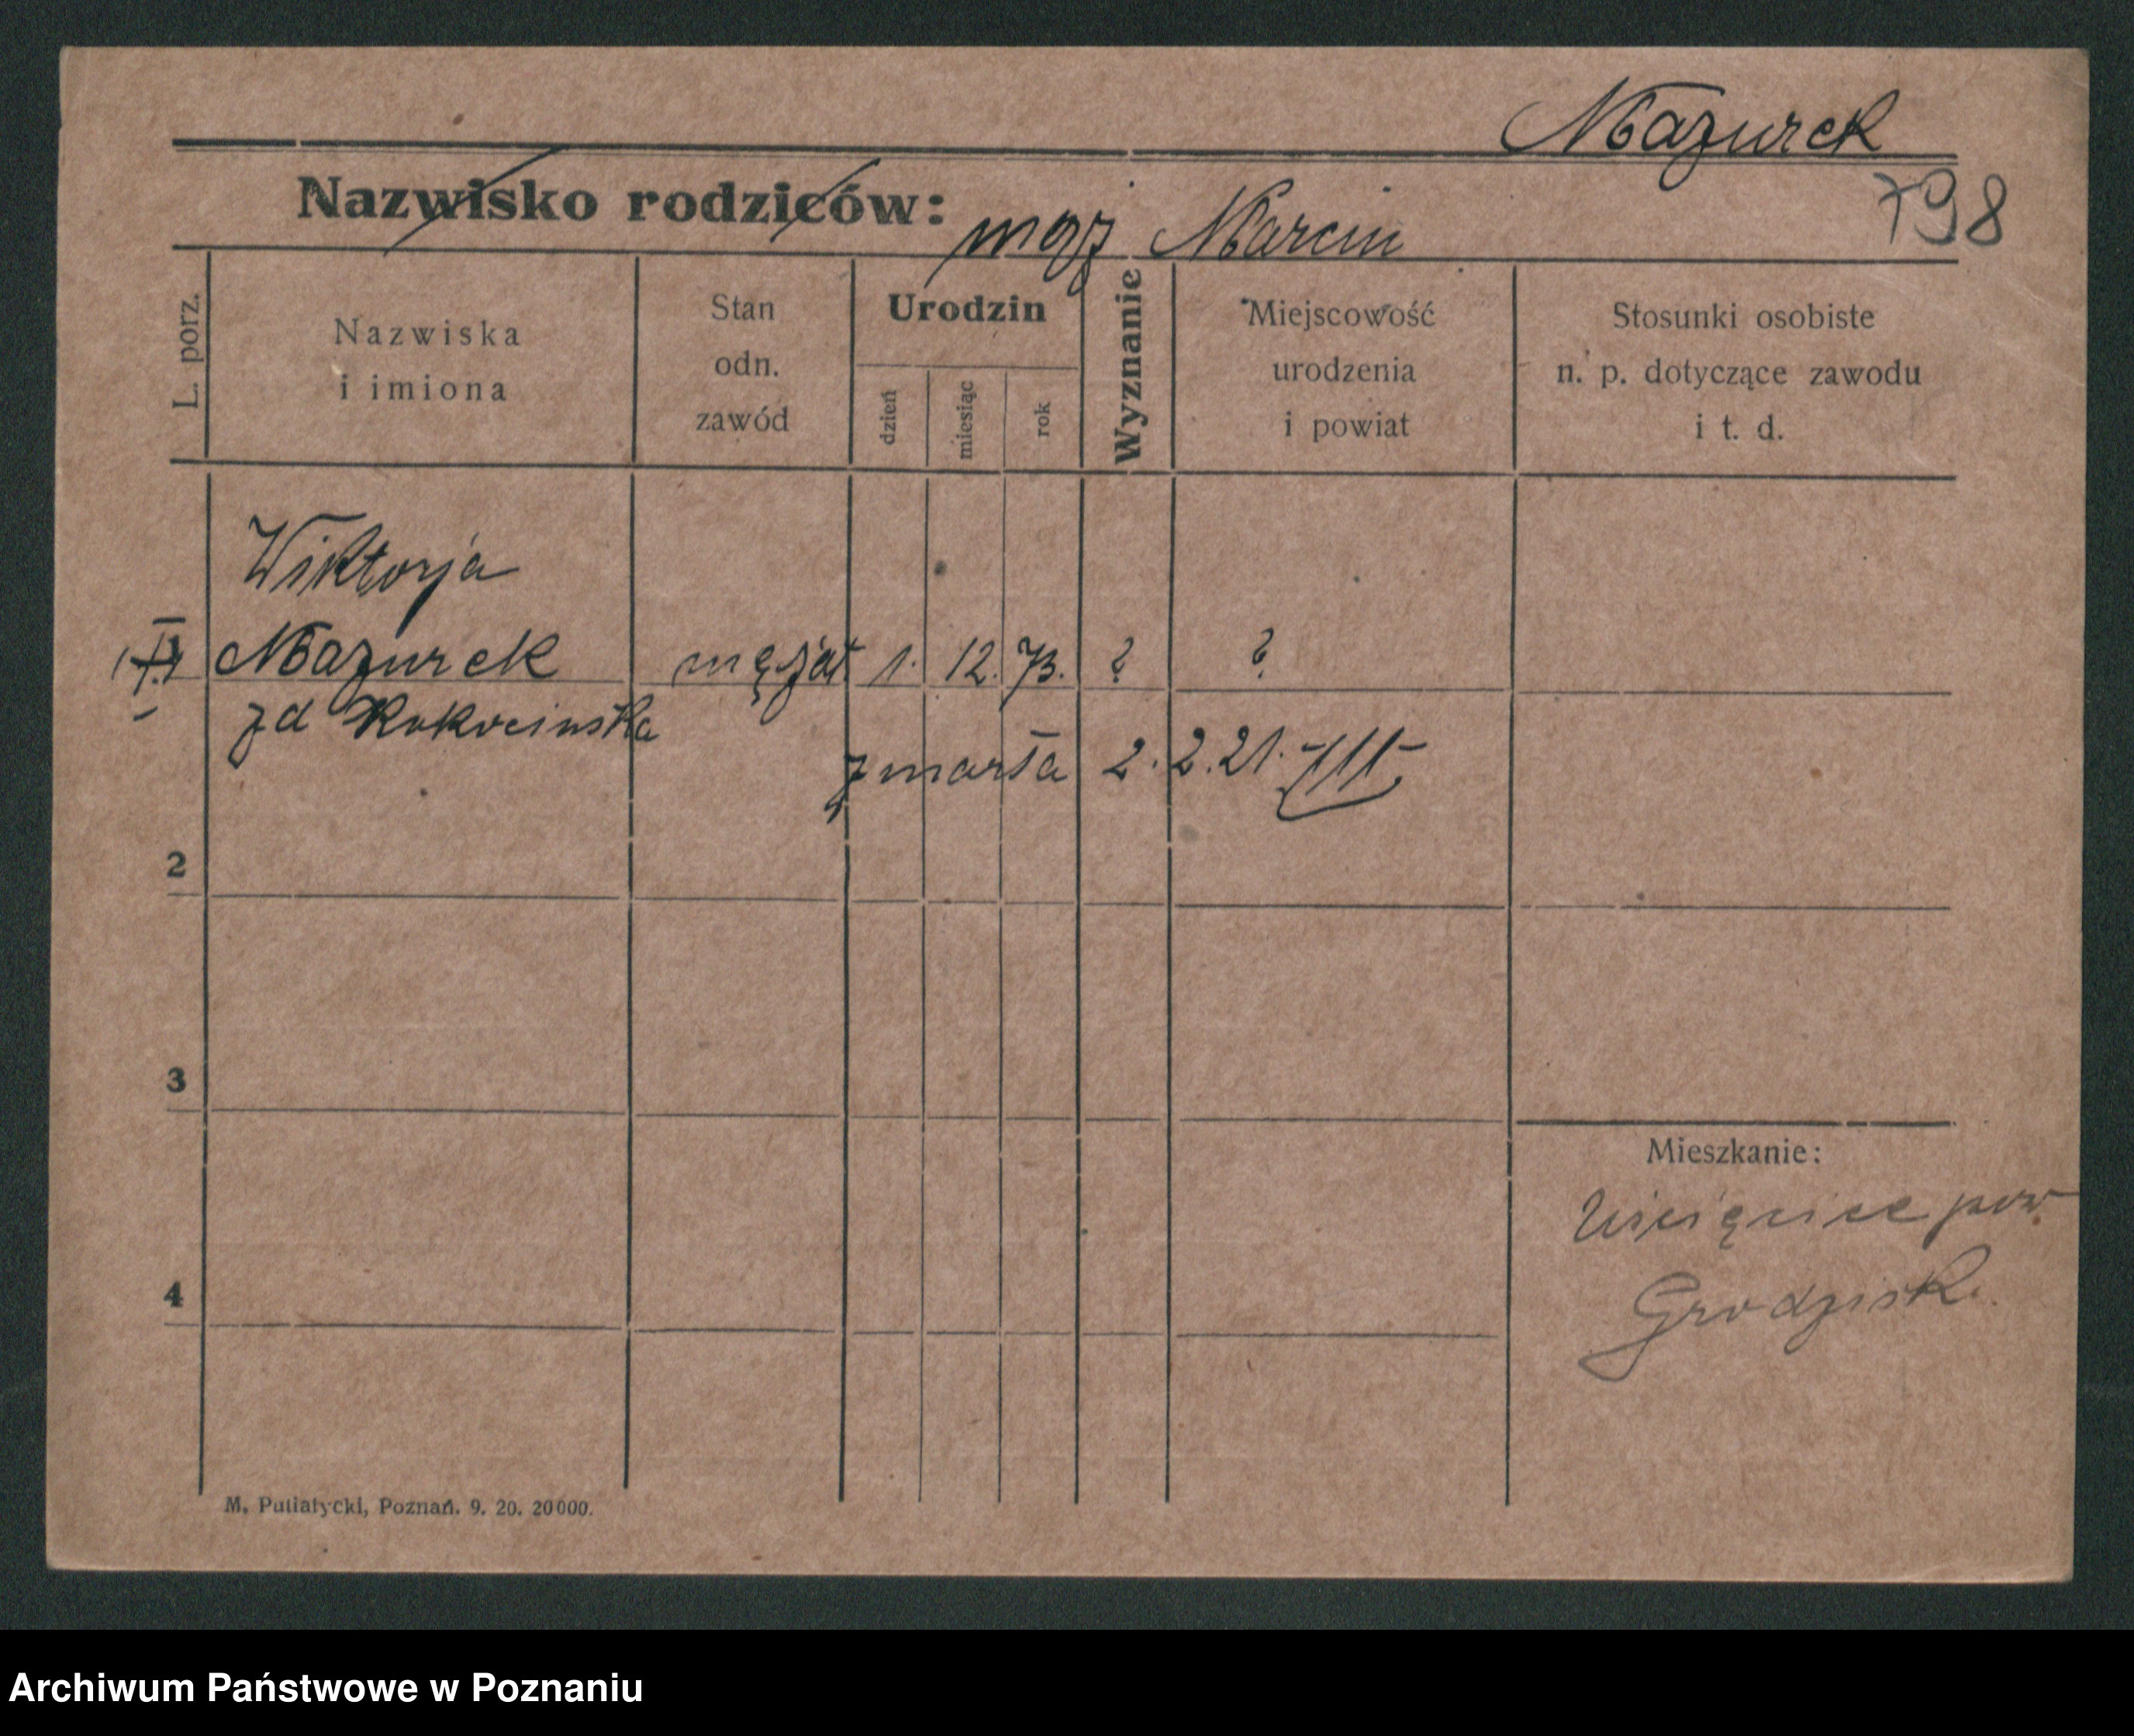 Mazurek
Nazwisko rodziców:
mąż Marcin
798
L. porz.
Nazwiska
i imiona
Stan
odn.
zawód
Urodzin
dzień
miesiąc
rok
Wyznanie
Miejscowość
urodzenia
i powiat
Stosunki osobiste
n. p. dotyczące zawodu
i t. d.
Wiktorja
Mazurek mężat 1. 12. 73. ? ?
zd Kokocinska
zmarła 2. 2. 21.
2
3
Mieszkanie:
pow
4
Grodzisk.
M. Putiatycki, Poznań. 9. 20. 20000.
Archiwum Państwowe w Poznaniu